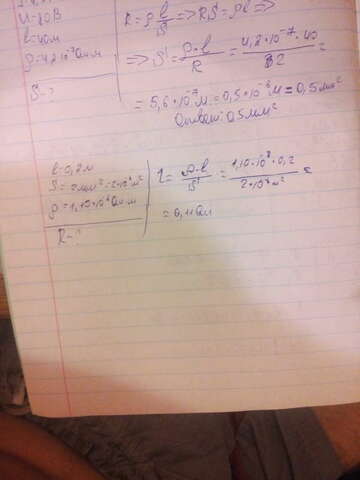 U=20В
l=40м
ρ=4,2·10⁻⁷Ом·м
S-?
R=ρ l/S => RS=ρl =>
=> S=ρ·l/R = 4,2·10⁻⁷·40/32 =
= 5,6*10⁻⁷м=0,5*10⁻⁶м=0,5мм²
Ответ: 0,5мм²
l=0,2м
S=2мм²=2*10⁻⁶м²
R-?
= ρ·l/S = 1,10·10⁻⁶·0,2/2*10⁻⁶м² =
=0,11Ом